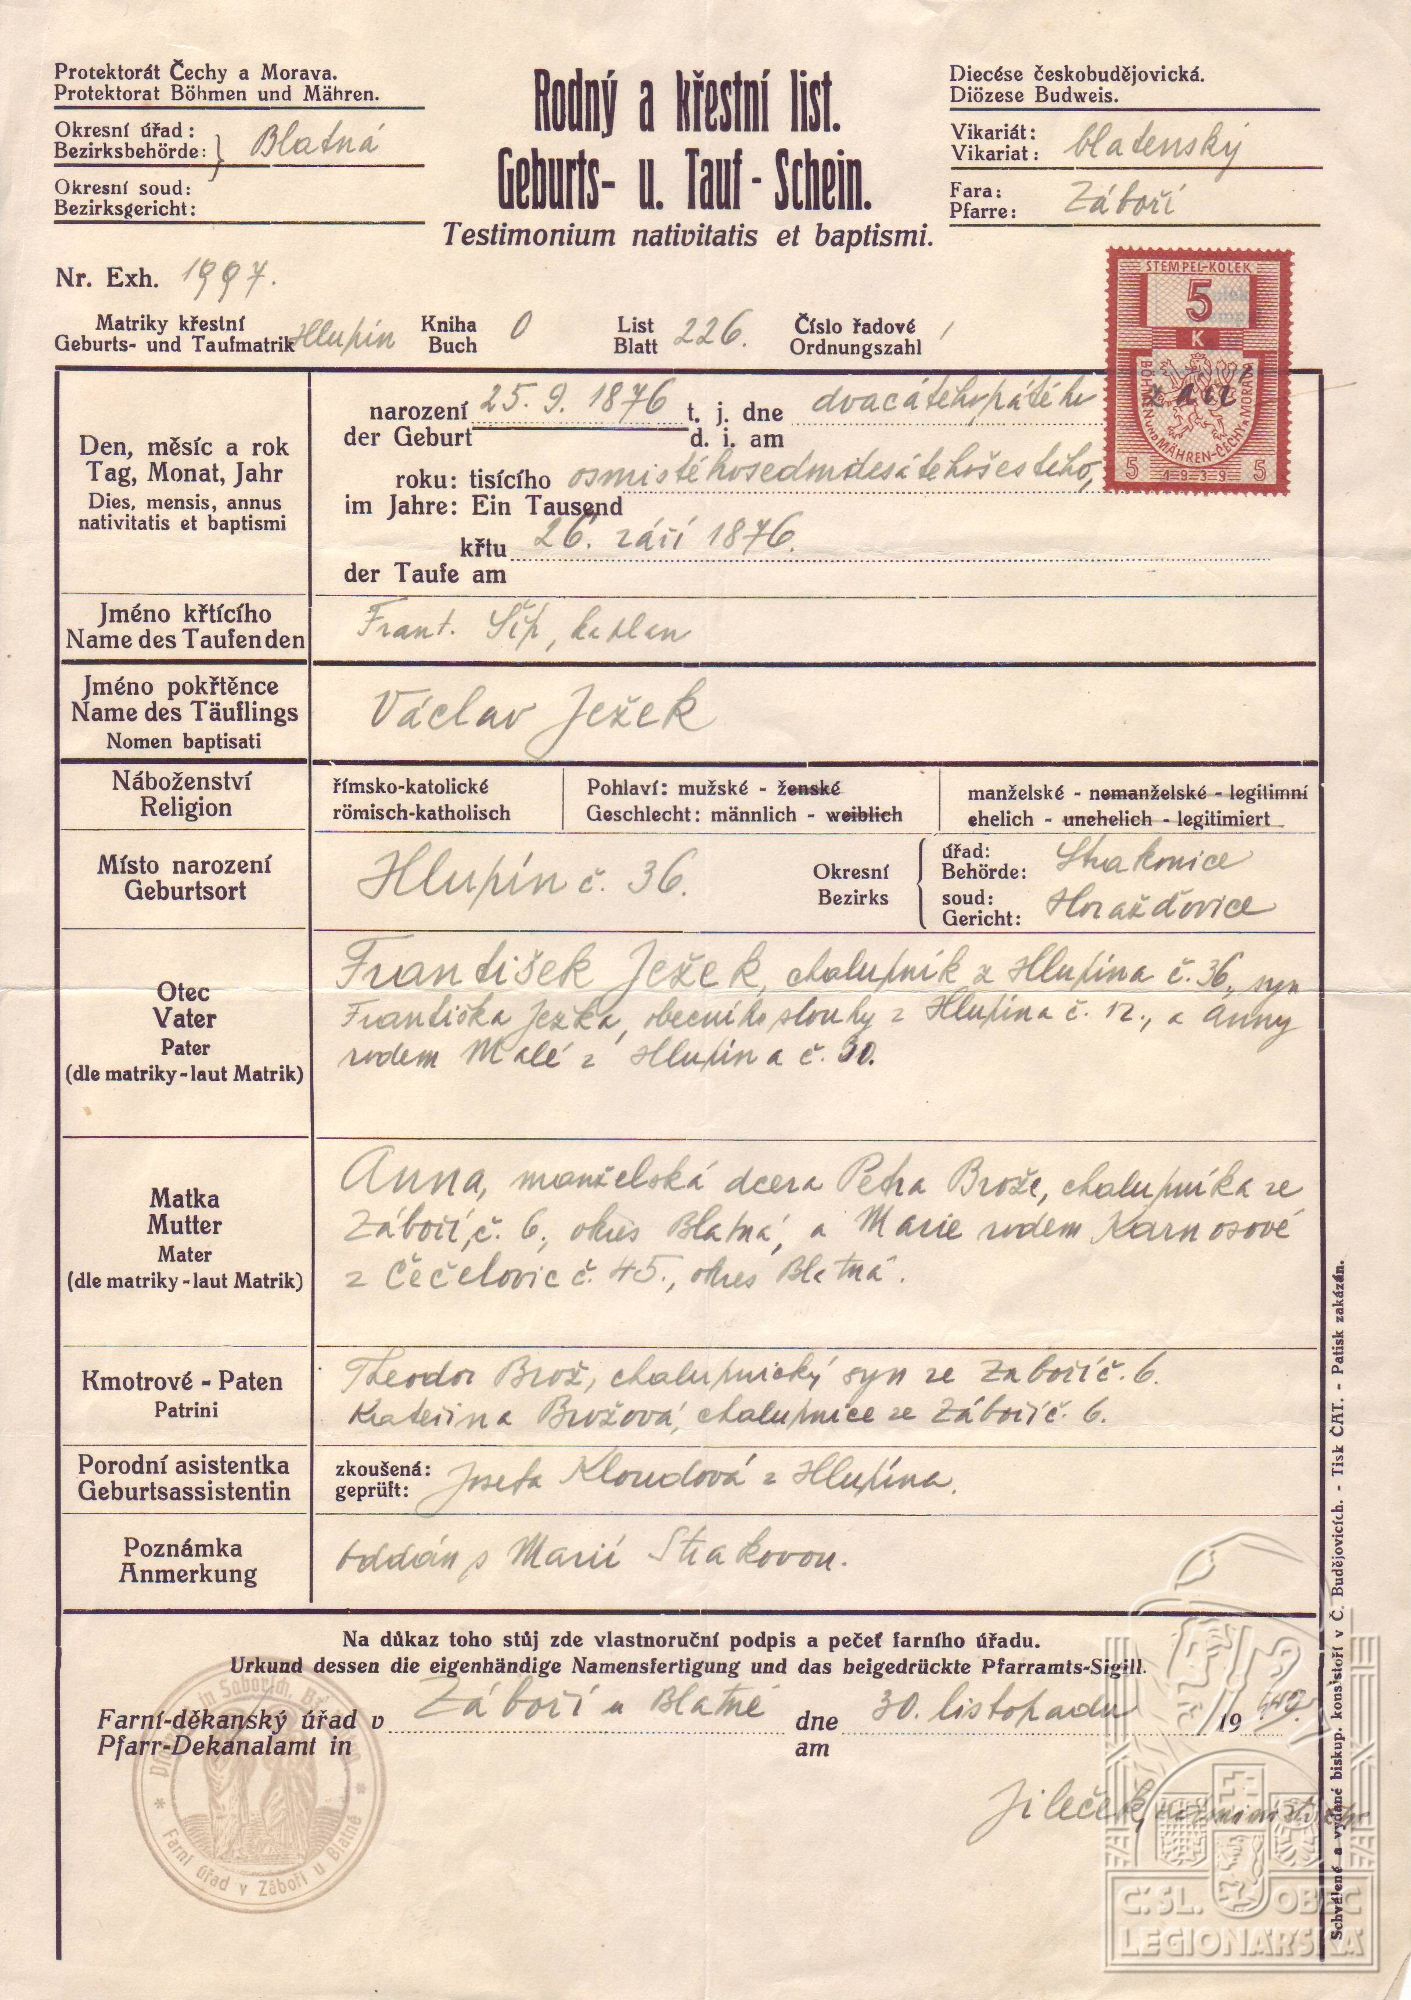 Protektorát Čechy a Morava.
Protektorat Böhmen und Mähren.
Okresní úřad:
Bezirksbehörde: } Blatná
Okresní soud:
Bezirksgericht:
Rodný a křestní list.
Geburts- u. Tauf-Schein.
Testimonium nativitatis et baptismi.
Diecése českobudějovická.
Diözese Budweis.
Vikariát:
Vikariat: blatenský
Fara:
Pfarre: Záboří
Nr. Exh. 1997.
Matriky křestní
Geburts- und Taufmatrik Hlupín
Kniha
Buch 0
List
Blatt 226.
Číslo řadové
Ordnungszahl /
STEMPEL-KOLEK
5
K
BÖHMEN UND MÄHREN-ČECHY A MORAVA
5 1939 5
Den, měsíc a rok
Tag, Monat, Jahr
Dies, mensis, annus
nativitatis et baptismi
narození 25. 9. 1876 t. j. dne dvacátéhopátého září
der Geburt d. i. am
roku: tisícího osmistéhosedmdesátehošestého,
im Jahre: Ein Tausend
křtu 26. září 1876.
der Taufe am
Jméno křtícího
Name des Taufenden
Frant. Šíp, kaplan
Jméno pokřtěnce
Name des Täuflings
Nomen baptisati
Václav Ježek
Náboženství
Religion
římsko-katolické
römisch-katholisch
Pohlaví: mužské - ženské
Geschlecht: männlich - weiblich
manželské - nemanželské - legitimní
ehelich - unehelich - legitimiert
Místo narození
Geburtsort
Hlupín č. 36.
Okresní
Bezirks
úřad:
Behörde: Strakonice
soud:
Gericht: Horažďovice
Otec
Vater
Pater
(dle matriky-laut Matrik)
František Ježek, chalupník z Hlupína č. 36, syn
Františka Ježka, obecního slouhy z Hlupína č. 12., a Anny
rodem Malé z Hlupína č. 30.
Matka
Mutter
Mater
(dle matriky-laut Matrik)
Anna, manželská dcera Petra Brože, chalupníka ze
Záboří, č. 6., okres Blatná, a Marie rodem Karnosové
z Čečelovic č. 45., okres Blatná.
Kmotrové - Paten
Patrini
Theodor Brož, chalupnický syn ze Záboří č. 6.
Kateřina Brožová, chalupnice ze Záboří č. 6.
Porodní asistentka
Geburtsassistentin
zkoušená:
geprüft: Josefa Kloudová z Hlupína.
Poznámka
Anmerkung
oddán s Marií Strakovou.
Na důkaz toho stůj zde vlastnoruční podpis a pečeť farního úřadu.
Urkund dessen die eigenhändige Namensfertigung und das beigedrückte Pfarramts-Sigill.
Farní-děkanský úřad v Záboří u Blatné dne 30. listopadu 19
Pfarr-Dekanalamt in am
Farní úřad v Záboří u Blatné
Jileček, administrátor
Č.SL. OBEC
LEGIONÁŘSKÁ
Schválené a vydané biskup. konsistoří v Č. Budějovicích. - Tisk ČAT. - Patisk zakázán.